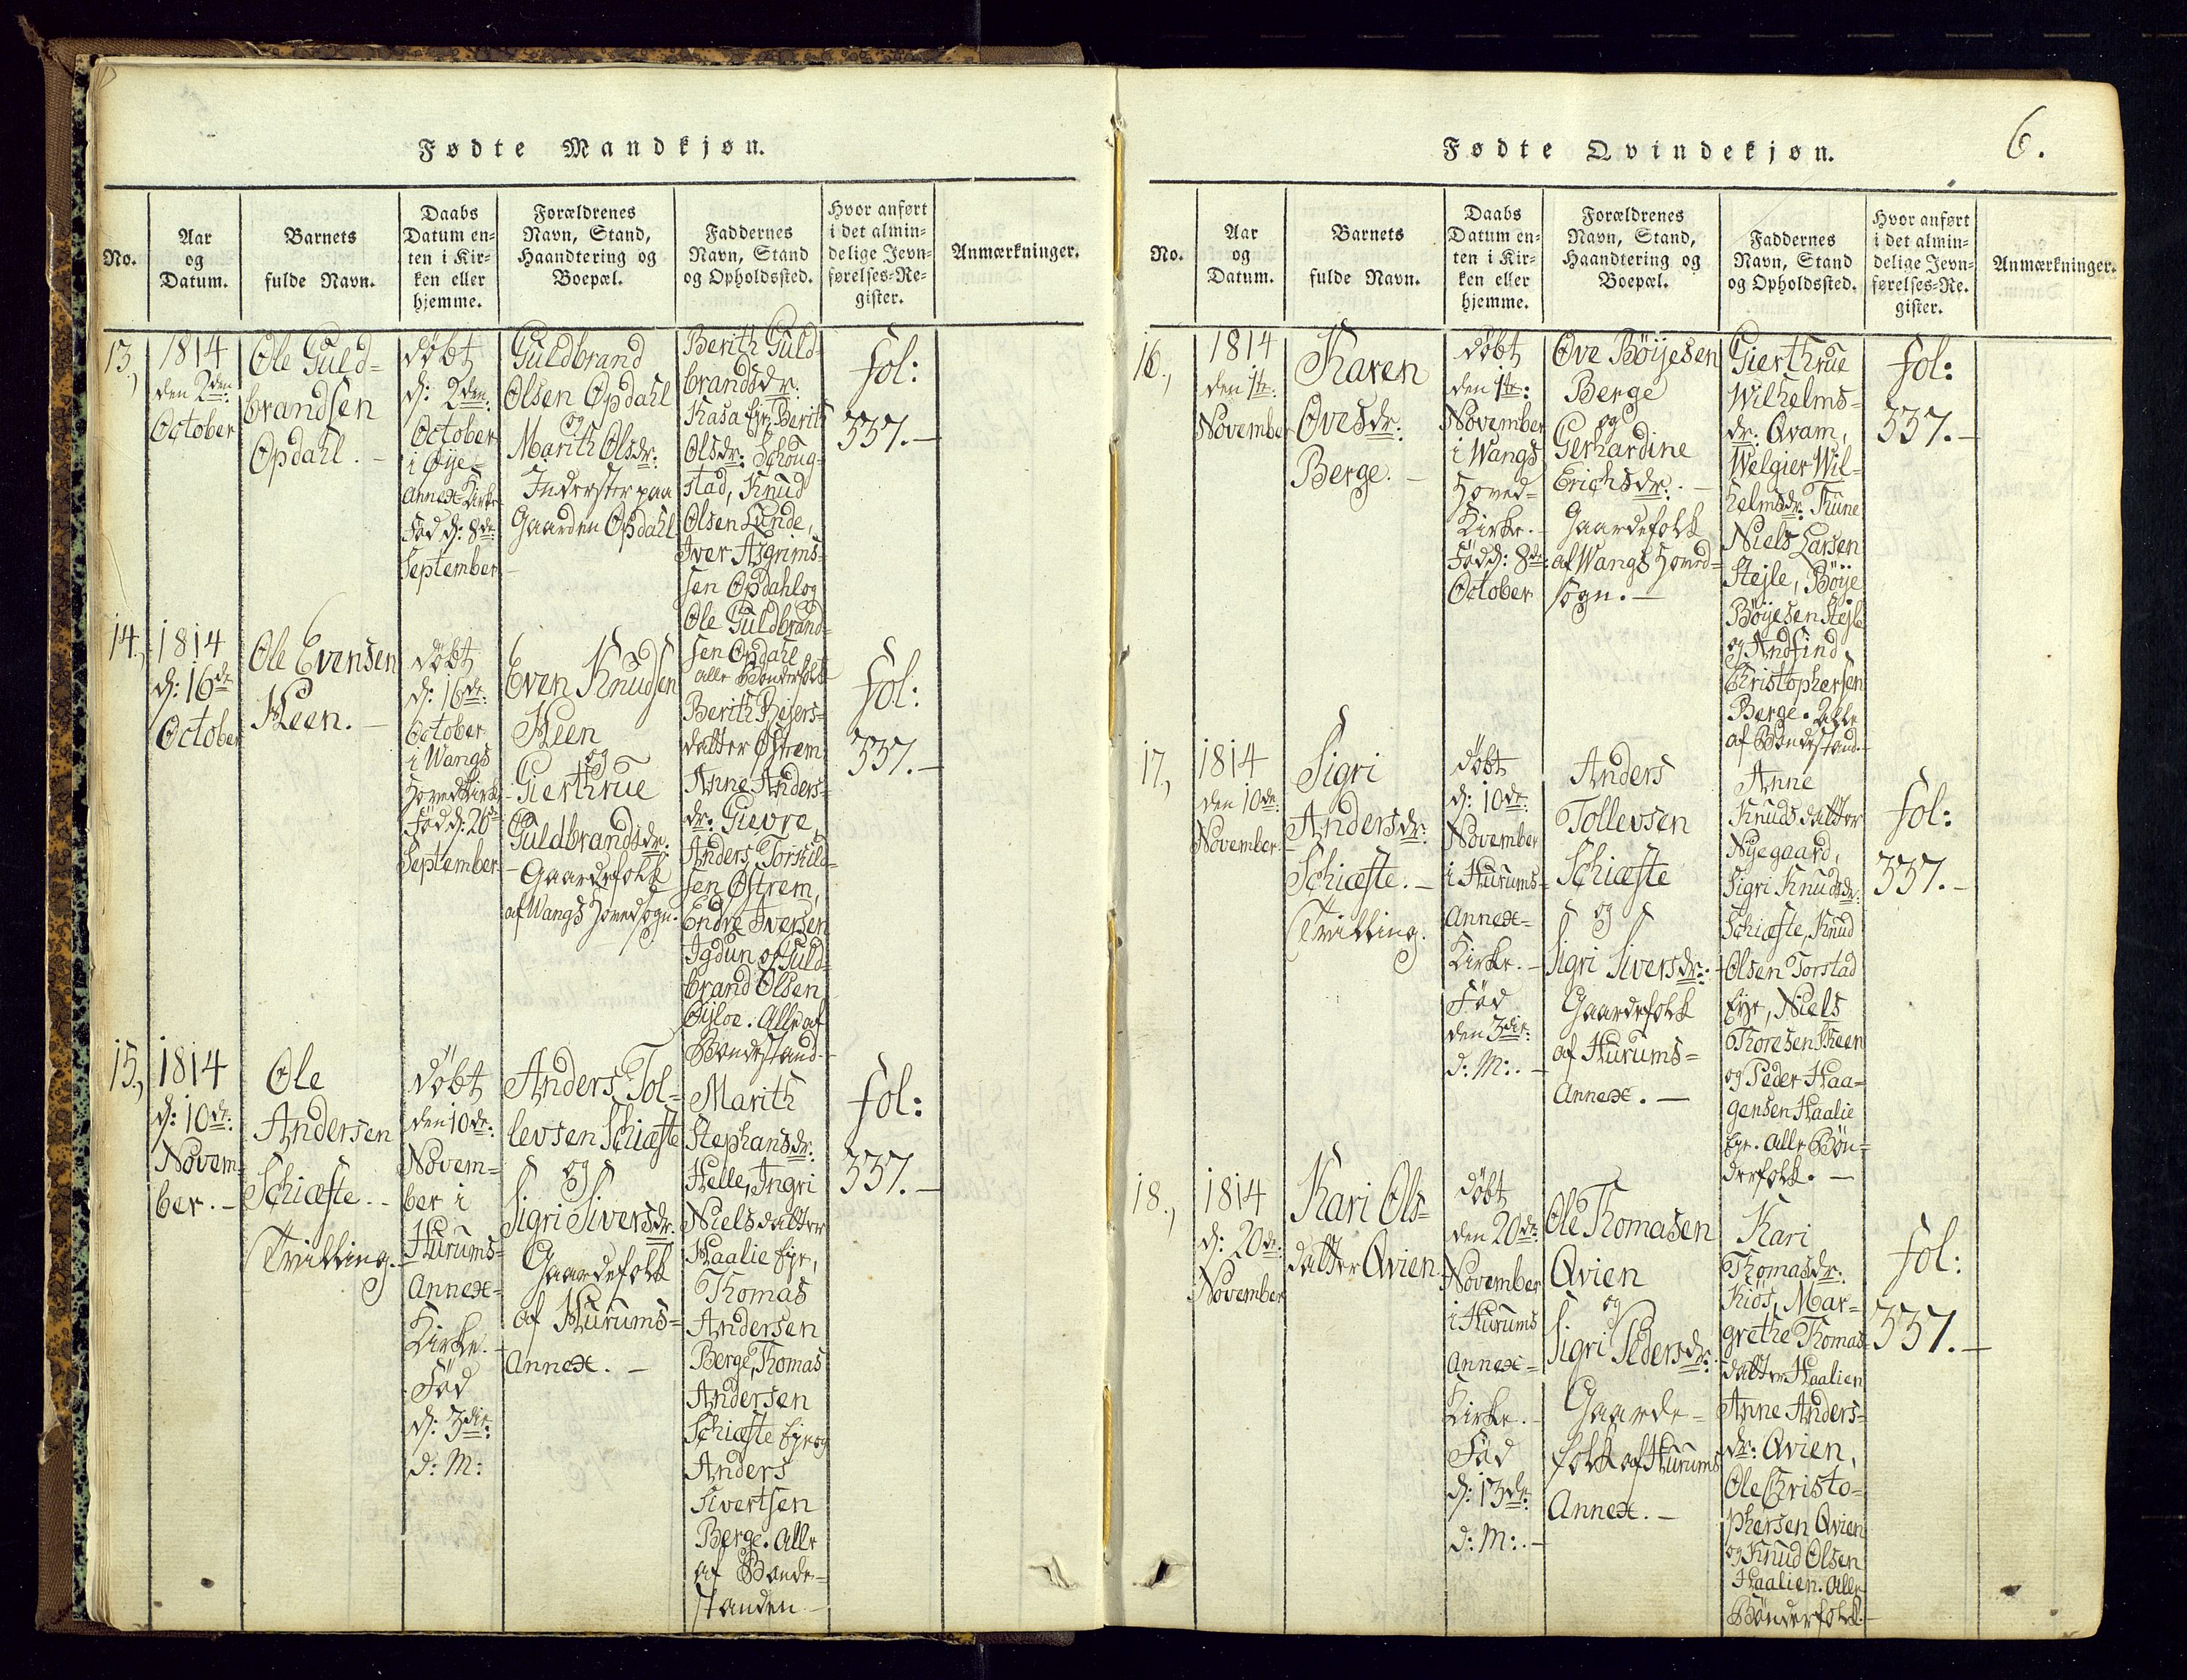 Fødte Mandkjøn.
No.
Aar
og
Datum.
Barnets
fulde Navn.
Daabs
Datum en-
ten i Kir-
ken eller
hjemme.
Forældrenes
Navn, Stand,
Haandtering og
Boepæl.
Faddernes
Navn, Stand
og Opholdssted.
Hvor anført
i det almin-
delige Jevn-
førelses-Re-
gister.
Anmærkninger.
13,
1814
den 2den:
October
Ole Guld-
brandsen
Opdahl. -
døbt
d: 2den:
October
i Øye-
Annex-Kirke
Fød d: 8de:
September
Guldbrand
Olsen Opdahl
og
Marith Olsdr:
Inderster paa
Gaarden Opdahl
Berith Guld-
brandsdr:
Kasa Eye, Berith
Olsdr: Schoug-
stad, Knud
Olsen Lunde,
Iver Asgrims-
sen Opdahl og
Ole Guldbrand-
sen Opdahl
alle Bønderfolk
fol:
337.-
14,
1814
d: 16de
October
Ole Evensen
Heen. -
døbt
d: 16de:
October
i Wangs
Hovedkirke
Fød d: 26de
September
Even Knudsen
Heen
og
Gierthrue
Guldbrandsdr:
Gaardefolk
af Wangs Hovedsogn.
Berith
datter Østrem,
Anne Anders-
dr: Gievre,
Anders Torkild-
sen Østrem,
Endre Iversen
Igdun og Guld-
brand Olsen
Øyloe. Alle af
Bondestand.-
fol:
337.-
15,
1814
d: 10de:
Novem-
ber. -
Ole
Andersen
Schiæfte. -
Tvilling.
døbt
den 10de:
Novem-
ber i
Hurums-
Annex-
Kirke. -
Fød
d: 3die:
d: M:
Anders Tol-
levsen Schiæfte
og
Sigri Siversdr:
Gaardefolk
af Hurums-
Annex. -
Marith
Stephansdr:
Helle, Ingri
Nielsdatter
Haalie Eye,
Thomas
Andersen
Berge, Thomas
Andersen
Schiæfte Eye og
Anders
Sivertsen
Berge. Alle
af Bonde-
standen. -
fol:
337.-
6.
Fødte Qvindekjøn.
No.
Aar
og
Datum.
Barnets
fulde Navn.
Daabs
Datum en-
ten i Kir-
ken eller
hjemme.
Forældrenes
Navn, Stand,
Haandtering og
Boepæl.
Faddernes
Navn, Stand
og Opholdssted.
Hvor anført
i det almin-
delige Jevn-
førelses-Re-
gister.
Anmærkninger.
16.,
1814
den 1ste:
November
Karen
Ovesdr:
Berge. -
døbt
den 1ste:
November
i Wangs
Hoved-
Kirke. -
Fød d: 8de:
October
Ove Bøijesen
Berge
og
Gerhardine
Erichsdr: -
Gaardefolk
af Wangs Hoved-
sogn. -
Gierthrue
Wilhelms-
dr: Qvam,
Welgier Wil-
helmsdr: Thune
Niels Larsen
Stejle, Bøije
Bøijesen Stejle
og Andfind
Christophersen
Berge. Alle
af Bondestand.-
fol:
337.-
17,
1814
den 10de:
November
Sigri
Andersdr:
Schiæfte. -
Tvilling.
døbt
d: 10de:
November
i Hurums-
Annex-
Kirke. -
Fød
den 3die:
d: M:. -
Anders
Tollevsen
Schiæfte
og
Sigri Siversdr: -
Gaardefolk
af Hurums-
Annex. -
Anne
Knudsdatter
Nyegaard,
Sigri Knudsdr:
Schiæfte, Knud
Olsen Torstad
Eye, Niels
Thoresen Skeen
og Peder Haa-
gensen Haalie
Eye. Alle Bøn-
derfolk. -
fol:
337.-
18.,
1814
d: 20de:
November
Kari Ols-
datter Qvien.
døbt
den 20de:
November
i Hurums
Annex-
Kirke. -
Fød
d: 13de:
d: M:. -
Ole Thomasen
Qvien
og
Sigri Pedersdr:
Gaarde-
folk af Hurums
Annex. -
Kari
Thomasdr:
Kiøs, Mar-
grethe Thomas-
datter Haalien
Anne Anders-
dr: Qvien,
Ole Christo-
phersen Qvien
og Knud Olsen
Haalien. Alle
Bønderfolk.-
fol:
337.-